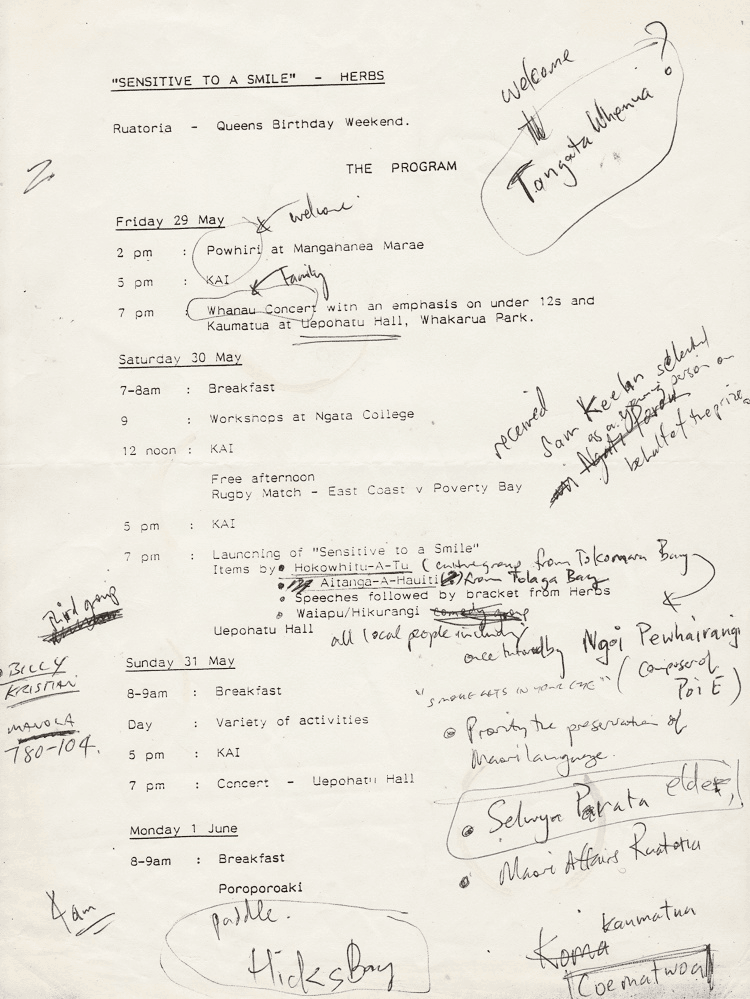 "SENSITIVE TO A SMILE" - HERBS
welcome
Tangata Whenua
?
Ruatoria - Queens Birthday Weekend.
2
THE PROGRAM
Friday 29 May
welcome
2 pm : Powhiri at Mangahanea Marae
5 pm : KAI
Family
7 pm : Whanau Concert with an emphasis on under 12s and
Kaumatua at Uepohatu Hall, Whakarua Park.
Saturday 30 May
7-8am : Breakfast
9 : Workshops at Ngata College
12 noon : KAI
received
Sam Keelan selected
as a young person on
behalf of the prize
Free afternoon
Rugby Match - East Coast v Poverty Bay
5 pm : KAI
7 pm : Launching of "Sensitive to a Smile"
Items by • Hokowhitu-A-Tu ( group from Tokomaru Bay
• Aitanga-A-Hauiti (?) from Tolaga Bay
• Speeches followed by bracket from Herbs
• Waiapu/Hikurangi comedy group
Third group
Uepohatu Hall all local people including
once tutored by Ngoi Pewhairangi
(composer of
Poi E)
"SMOKE GETS IN YOUR EYE"
BILLY
KRISTIAN
MANOLA
780-104.
Sunday 31 May
8-9am : Breakfast
Day : Variety of activities
5 pm : KAI
7 pm : Concert - Uepohatu Hall
• Priority the preservation of
Maori language.
• Selwyn Parata elder,
• Maori Affairs Ruatoria
Monday 1 June
8-9am : Breakfast
Poroporoaki
4am
paddle.
Hicks Bay
kaumatua
Koma
Coematwoa